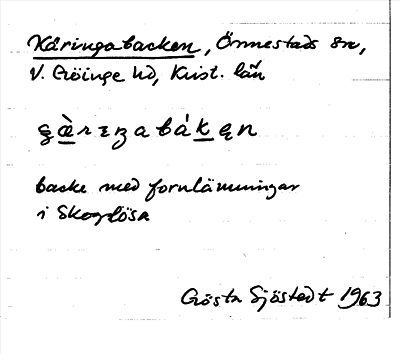 Käringabacken, Önnestads sn,
V. Göinge hd, Krist. län
backe med fornlämningar
i Skoglösa
Gösta Sjöstedt 1963